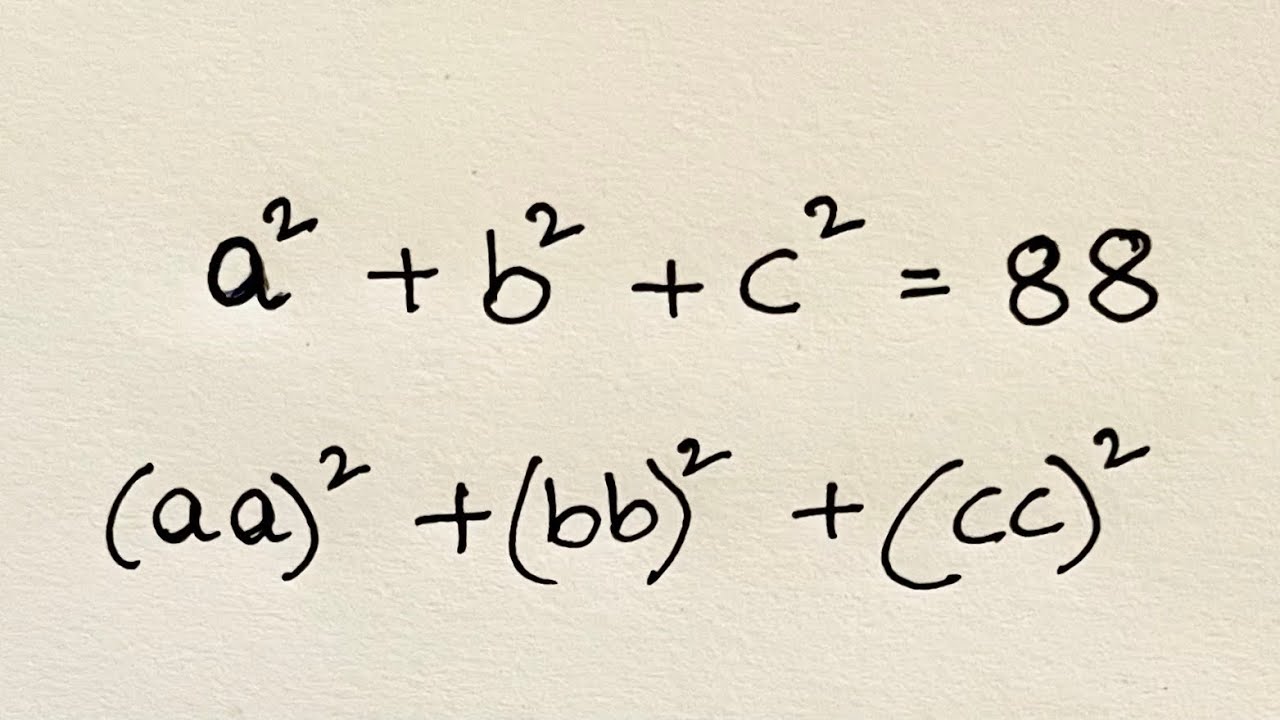 a² + b² + c² = 88
(aa)² + (bb)² + (cc)²